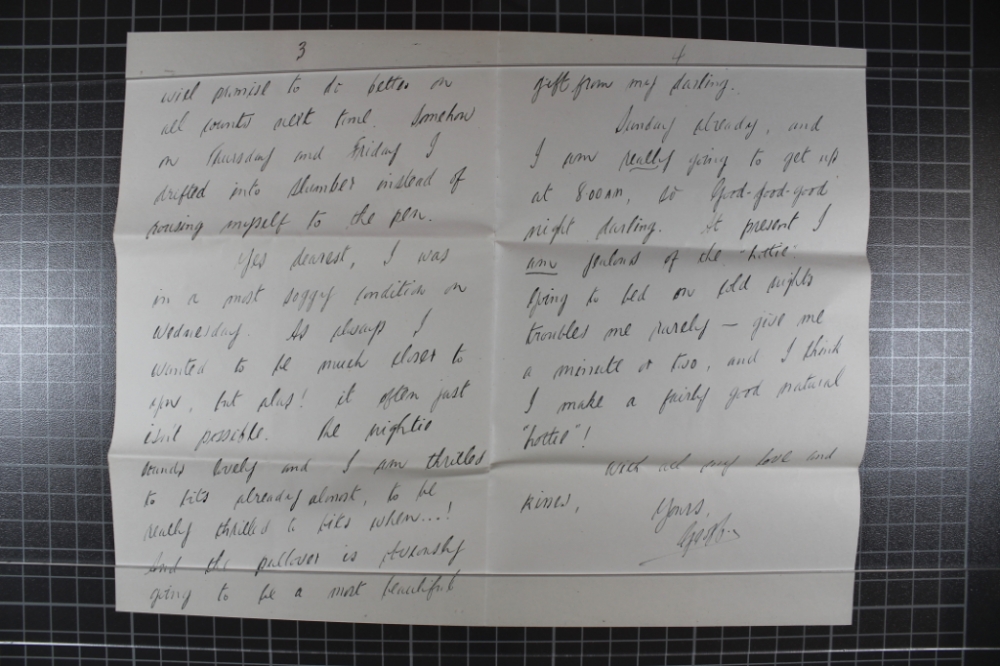 3
will promise to do better on
all counts next time. Somehow
on Thursday and Friday I
drifted into slumber instead of
rousing myself to the pen.
Yes dearest, I was
in a most soggy condition on
Wednesday. As always I
wanted to be much closer to
you, but alas! it often just
isn't possible. The nightie
sounds lovely and I am thrilled
to bits already almost, to be
really thrilled to bits when...!
And the pullover is
going to be a most beautiful
4
gift from my darling.
Sunday already, and
I am really going to get up
at 8.00am, so Good-good-good
night darling. At present I
am jealous of the "hottie".
Going to bed on cold nights
troubles me rarely — give me
a minute or two, and I think
I make a fairly good natural
"hottie"!
With all my love and
kisses,
Yours,